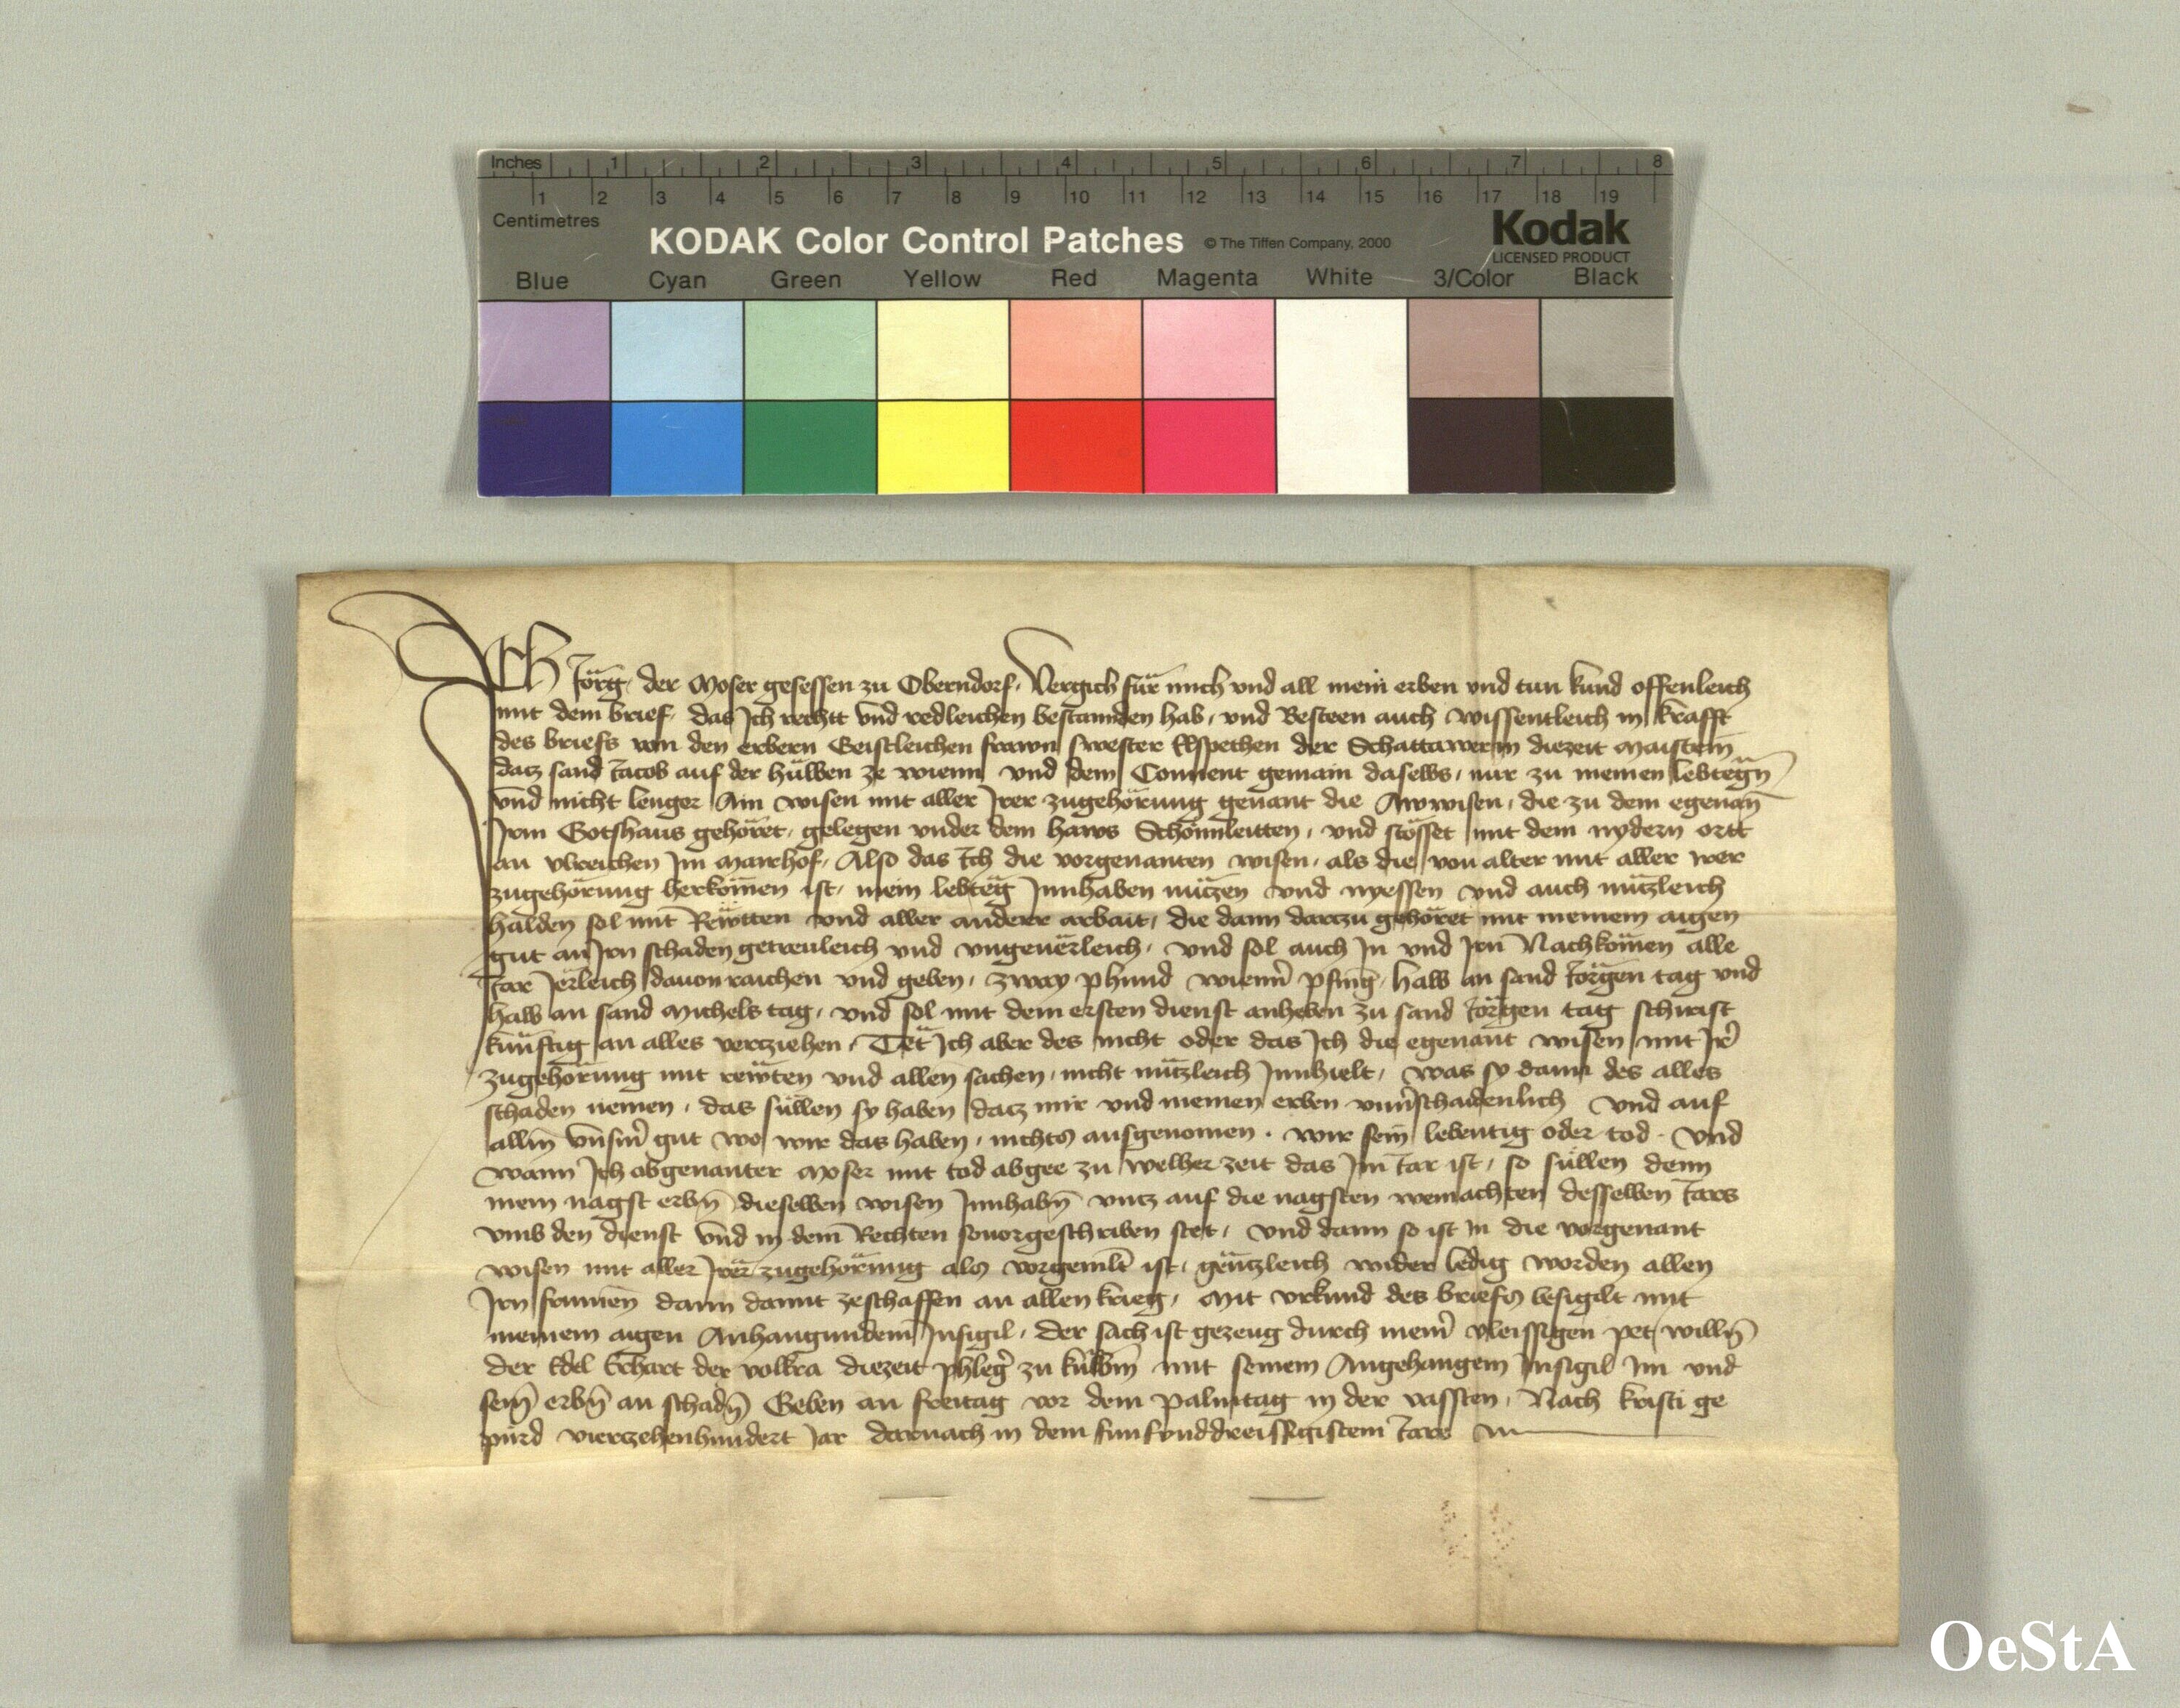 Inches 1 2 3 4 5 6 7 8
1 2 3 4 5 6 7 8 9 10 11 12 13 14 15 16 17 18 19
Centimetres
KODAK Color Control Patches © The Tiffen Company, 2000 Kodak
LICENSED PRODUCT
Blue Cyan Green Yellow Red Magenta White 3/Color Black
Ich Jörg der Moser gesessen zu Oberndorf, Vergich für mich vnd all mein erben vnd tun kund offenleich
mit dem brief, das Ich rechtt vnd redleichen bestannden hab, vnd Besteen auch wissentleich in krafft
des briefs von den erbern Geistleichen frawn swester Elspethen der Schattawerin diezeit Maisterin
datz sand Jacob auf der hülben ze wienn vnd dem Conuent gemain daselbs, nur zu meinen lebtegn
vnd nicht lenger Ain wisen mit aller Irer zugehörung genant die Awwisen, die zu dem egenan̄
Irm Gotshaus gehöret, gelegen vnder dem haws Schönnleitten, vnd stösset mit dem nydern ortt
an vlreichen Im Mairhof, Also das Ich die vorgenanten wisen, als die von alter mit aller irer
zugehörung herkömen ist, mein lebteg Innhaben nützen vnd nyessen vnd auch nützleich
halden sol mit Rewtten vnd aller anderr arbait, die dann darzu gehöret mit meinem aigen
gut an Irn schaden getreuleich vnd vngeuerleich, vnd sol auch In vnd Irn Nachkömen alle
Jar Jerleich dauon raichen vnd geben, zway phund wienn̄ pfing, halb an sand Jörgen tag vnd
halb an sand Michels tag, vnd sol mit dem ersten dienst anheben zu sand Jörgen tag schirist
künftig an alles verziehen, Tet Ich aber des nicht oder das Ich die egenant wisen mit Ir̄
zugehörung mit rewten vnd allen sachen, nicht nützleich Innhielt, was sy dann des alles
schaden nemen, das süllen sy haben datz mir vnd meinen erben vnu̅schaidenlich vnd auf
allm̄ vnsm̄ gut wo wir das haben, nichts ausgenomen. wir sein lebentig oder tod. Vnd
wann Ich obgenanter Moser mit tod abgee zu welher zeit das Im Jar ist, so süllen denn
mein nagst erbn̄ dieselben wisen Innhabn̄ vntz auf die nagsten weinachten desselben Jars
vmb den dienst vnd in dem Rechten souorgeschriben stet, vnd dann so ist in die vorgenant
wisen mit aller Irer zugehörung als vorgemlt ist, gentzleich wider ledig worden allen
Irn frumen dann damit zeschaffen an allen krieg, Mit vrkund des briefs besigilt mit
meinem aigen Anhangundem Insigil, der sach ist gezeug durch mein̄ vleissigen pet willn̄
der Edel Echart der volkra diezeit phleg̅ zu mit seinem Angehangem Insigil Im vnd
sein̄ erbn̄ an schadn̄ Geben an freitag vor dem Palmtag in der vassten, Nach kristi ge
pürd vierzehenhundert Jar darnach in dem funfvnddreissigistem Jare
OeStA